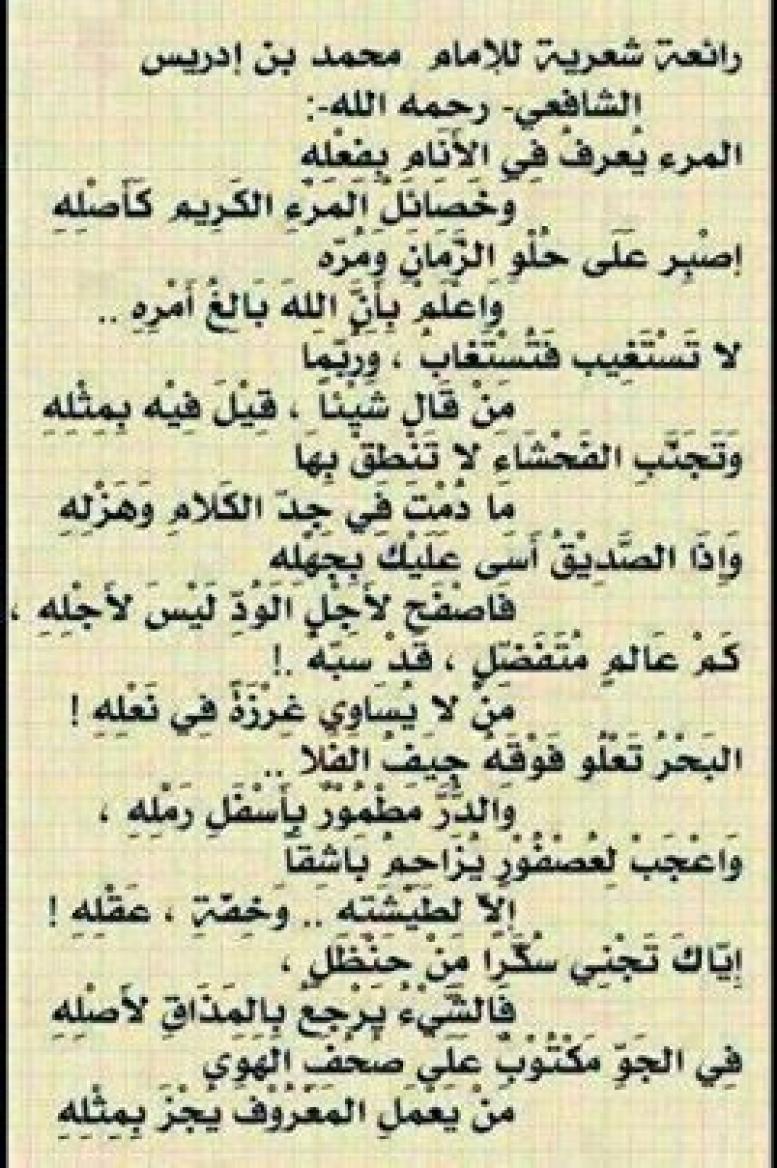 رائعة شعرية للإمام محمد بن إدريس
الشافعي- رحمه الله-:
المرء يُعرفُ فِي الأَنَامِ بِفِعْلِهِ
وَخَصَائلُ المَرْءِ الكَرِيم كَأَصْلِهِ
إصْبِر عَلَى حُلْوِ الزَّمَانِ وَمُرّه
وَاعْلَمْ بِأَنَّ اللهَ بَالِغُ أَمْرِهِ ..
لا تَسْتَغِيب فَتُسْتَغابُ ، وَرُبّمَا
مَنْ قَال شَيْئاً ، قِيْلَ فِيْه بِمِثْلِهِ
وَتَجَنَّبِ الفَحْشَاءَ لا تَنْطِقْ بِهَا
مَا دُمْتَ فِي جِدّ الكَلامِ وَهَزْلِهِ
وَإِذَا الصَّدِيْقُ أَسَى عَلَيْكَ بِجَهْلِه
فَاصْفَح لأَجْلِ الوُدِّ لَيْسَ لأَجْلِهِ ،
كَمْ عَالمٍ مُتَفَضِّلٍ ، قَدْ سَبّهُ .!
مَنْ لا يُسَاوِي غِرْزَةً فِي نَعْلِهِ !
البَحْرُ تَعْلُو فَوْقَهُ جِيَفُ الفَلا ..
وَالدُّرُّ مَطْمُوْرٌ بِأَسْفَلِ رَمْلِهِ ،
وَاعْجَبْ لِعُصْفُوْرٍ يُزَاحِمُ بَاشِقاً
إلّا لِطَيْشَتِه .. وَخِفّةِ ، عَقْلِهِ !
إِيّاكَ تَجْنِي سُكَّرًا مِنْ حَنْظَلٍ ،
فَالشَّيْءُ يَرْجِعُ بِالمَذَاقِ لأَصْلِهِ
فِي الجَوِّ مَكْتُوْبٌ عَلَى صُحُفِ الهَوَى
مَنْ يَعْمَلِ المَعْرُوْفَ يُجْزَ بِمِثْلِهِ